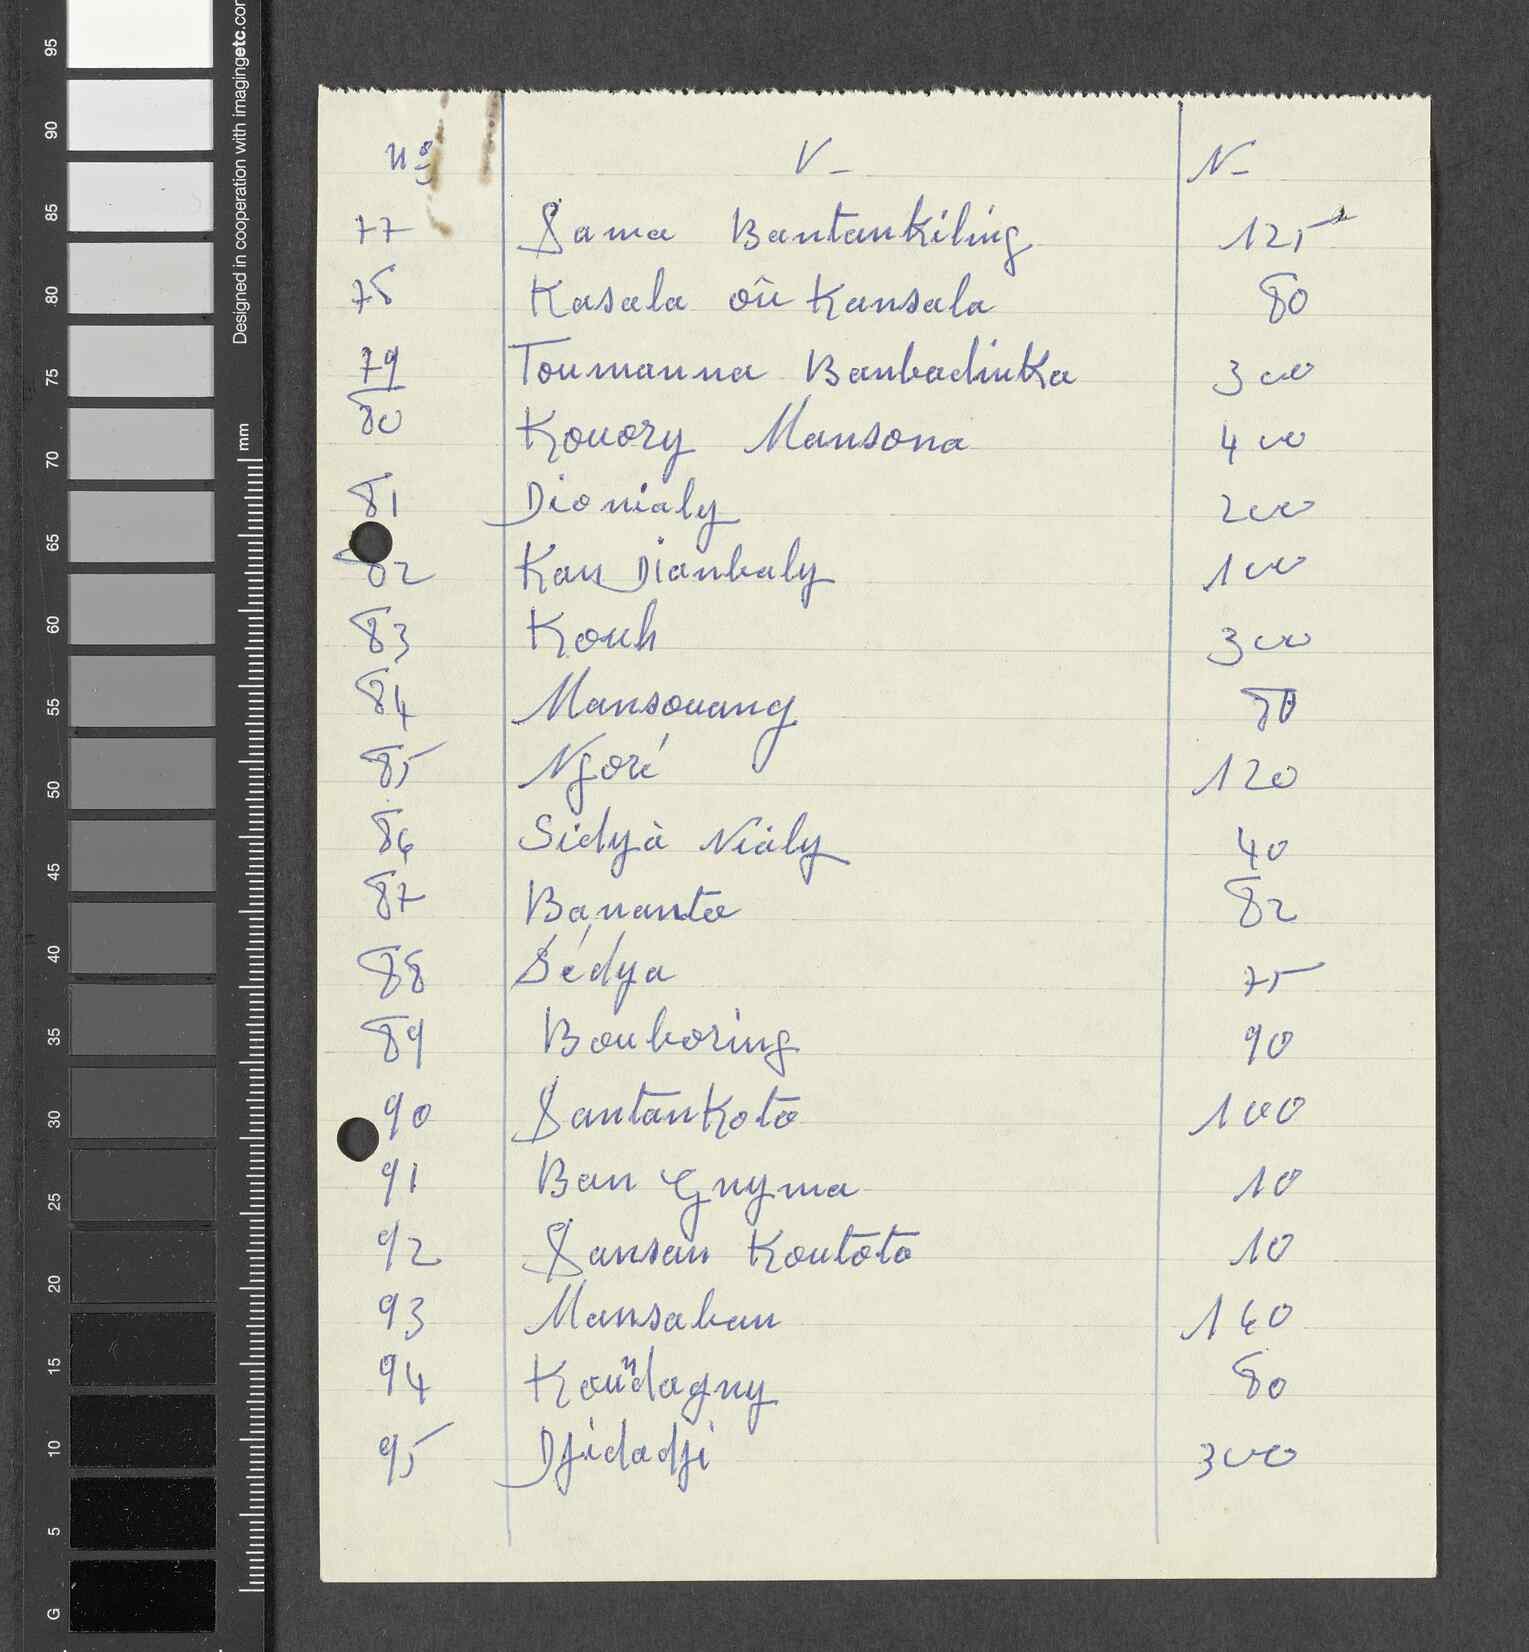 Designed in cooperation with imagingetc.com
mm
95
90
85
80
75
70
65
60
55
50
45
40
35
30
25
20
15
10
5
G
Nos V- N-
77 Sama Bantankiling 125
78 Kasala où Kansala 80
79 Toumanna Banbadinka 300
80 Kouory Mansona 400
81 Dionialy 200
82 Kan Dianbaly 100
83 Kouh 300
84 Mansouang 80
85 Ngoré 120
86 Sidyà Nialy 40
87 Bananto 82
88 Sédya 75
89 Bouboring 90
90 Santankoto 100
91 Ban Gnyma 10
92 Sansan Koutoto 10
93 Mansaban 160
94 Koundagny 80
95 Djidadji 300